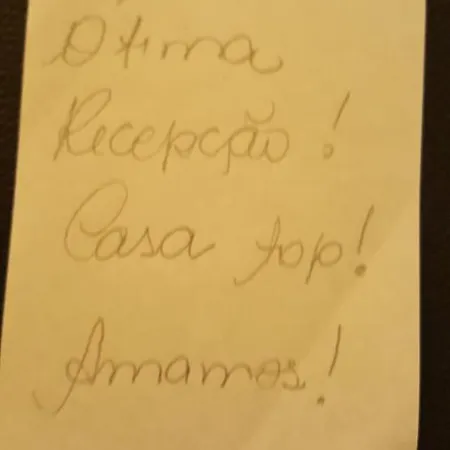 Otima
Recepção!
Casa top!
Amamos!